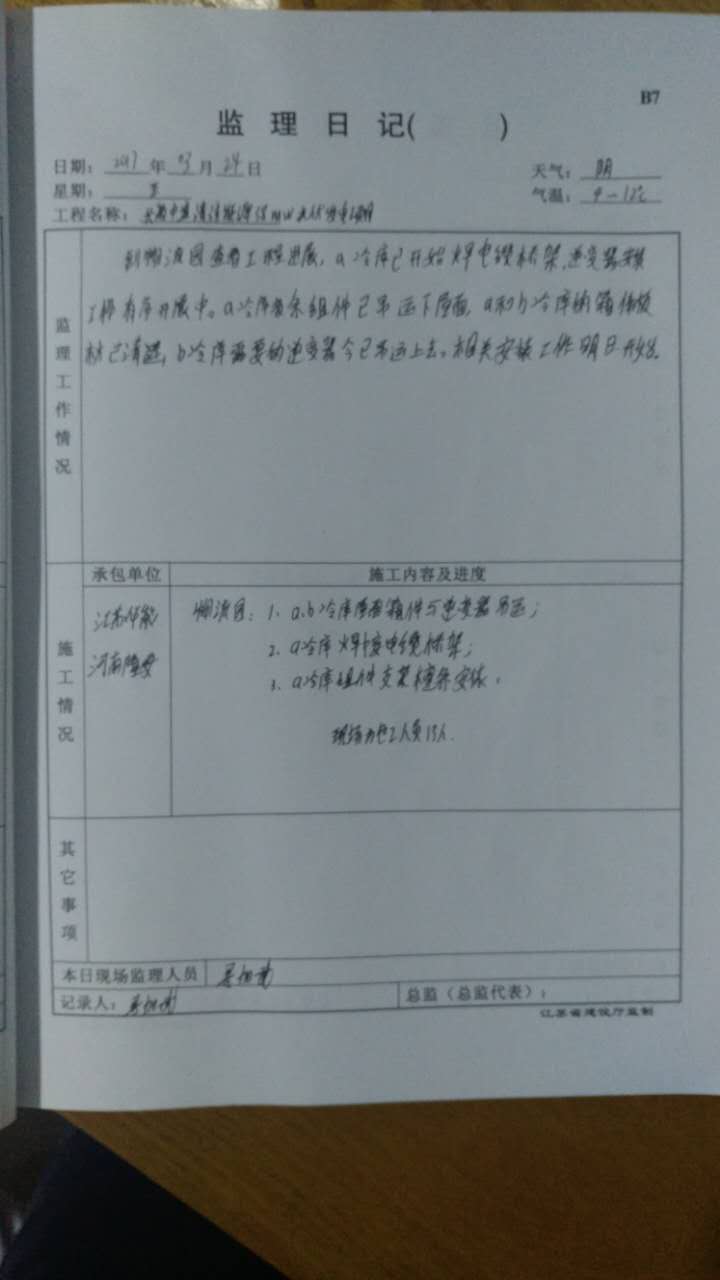 B7
监 理 日 记( )
日期: 2017 年 03 月 24 日 天气: 阴
星期: 五 气温: 9-12℃
工程名称:
监理工作情况
到物流园查看工程进展,a冷库已开始焊电缆桥架,逆变器安装
工作有序开展中。a冷库多余组件已吊运下屋面,a和b冷库的箱体
材已清运,b冷库需要的逆变器今已吊运上去。相关安装工作明日开始。
施工情况
承包单位 施工内容及进度
江苏 物流园:1、a.b冷库屋面箱体与逆变器吊运;
河南 2、a冷库焊接电缆桥架;
3、a冷库组件支架檩条安装。
现场施工人员15人.
其它事项
本日现场监理人员
记录人: 总监(总监代表):
江苏省建设厅监制